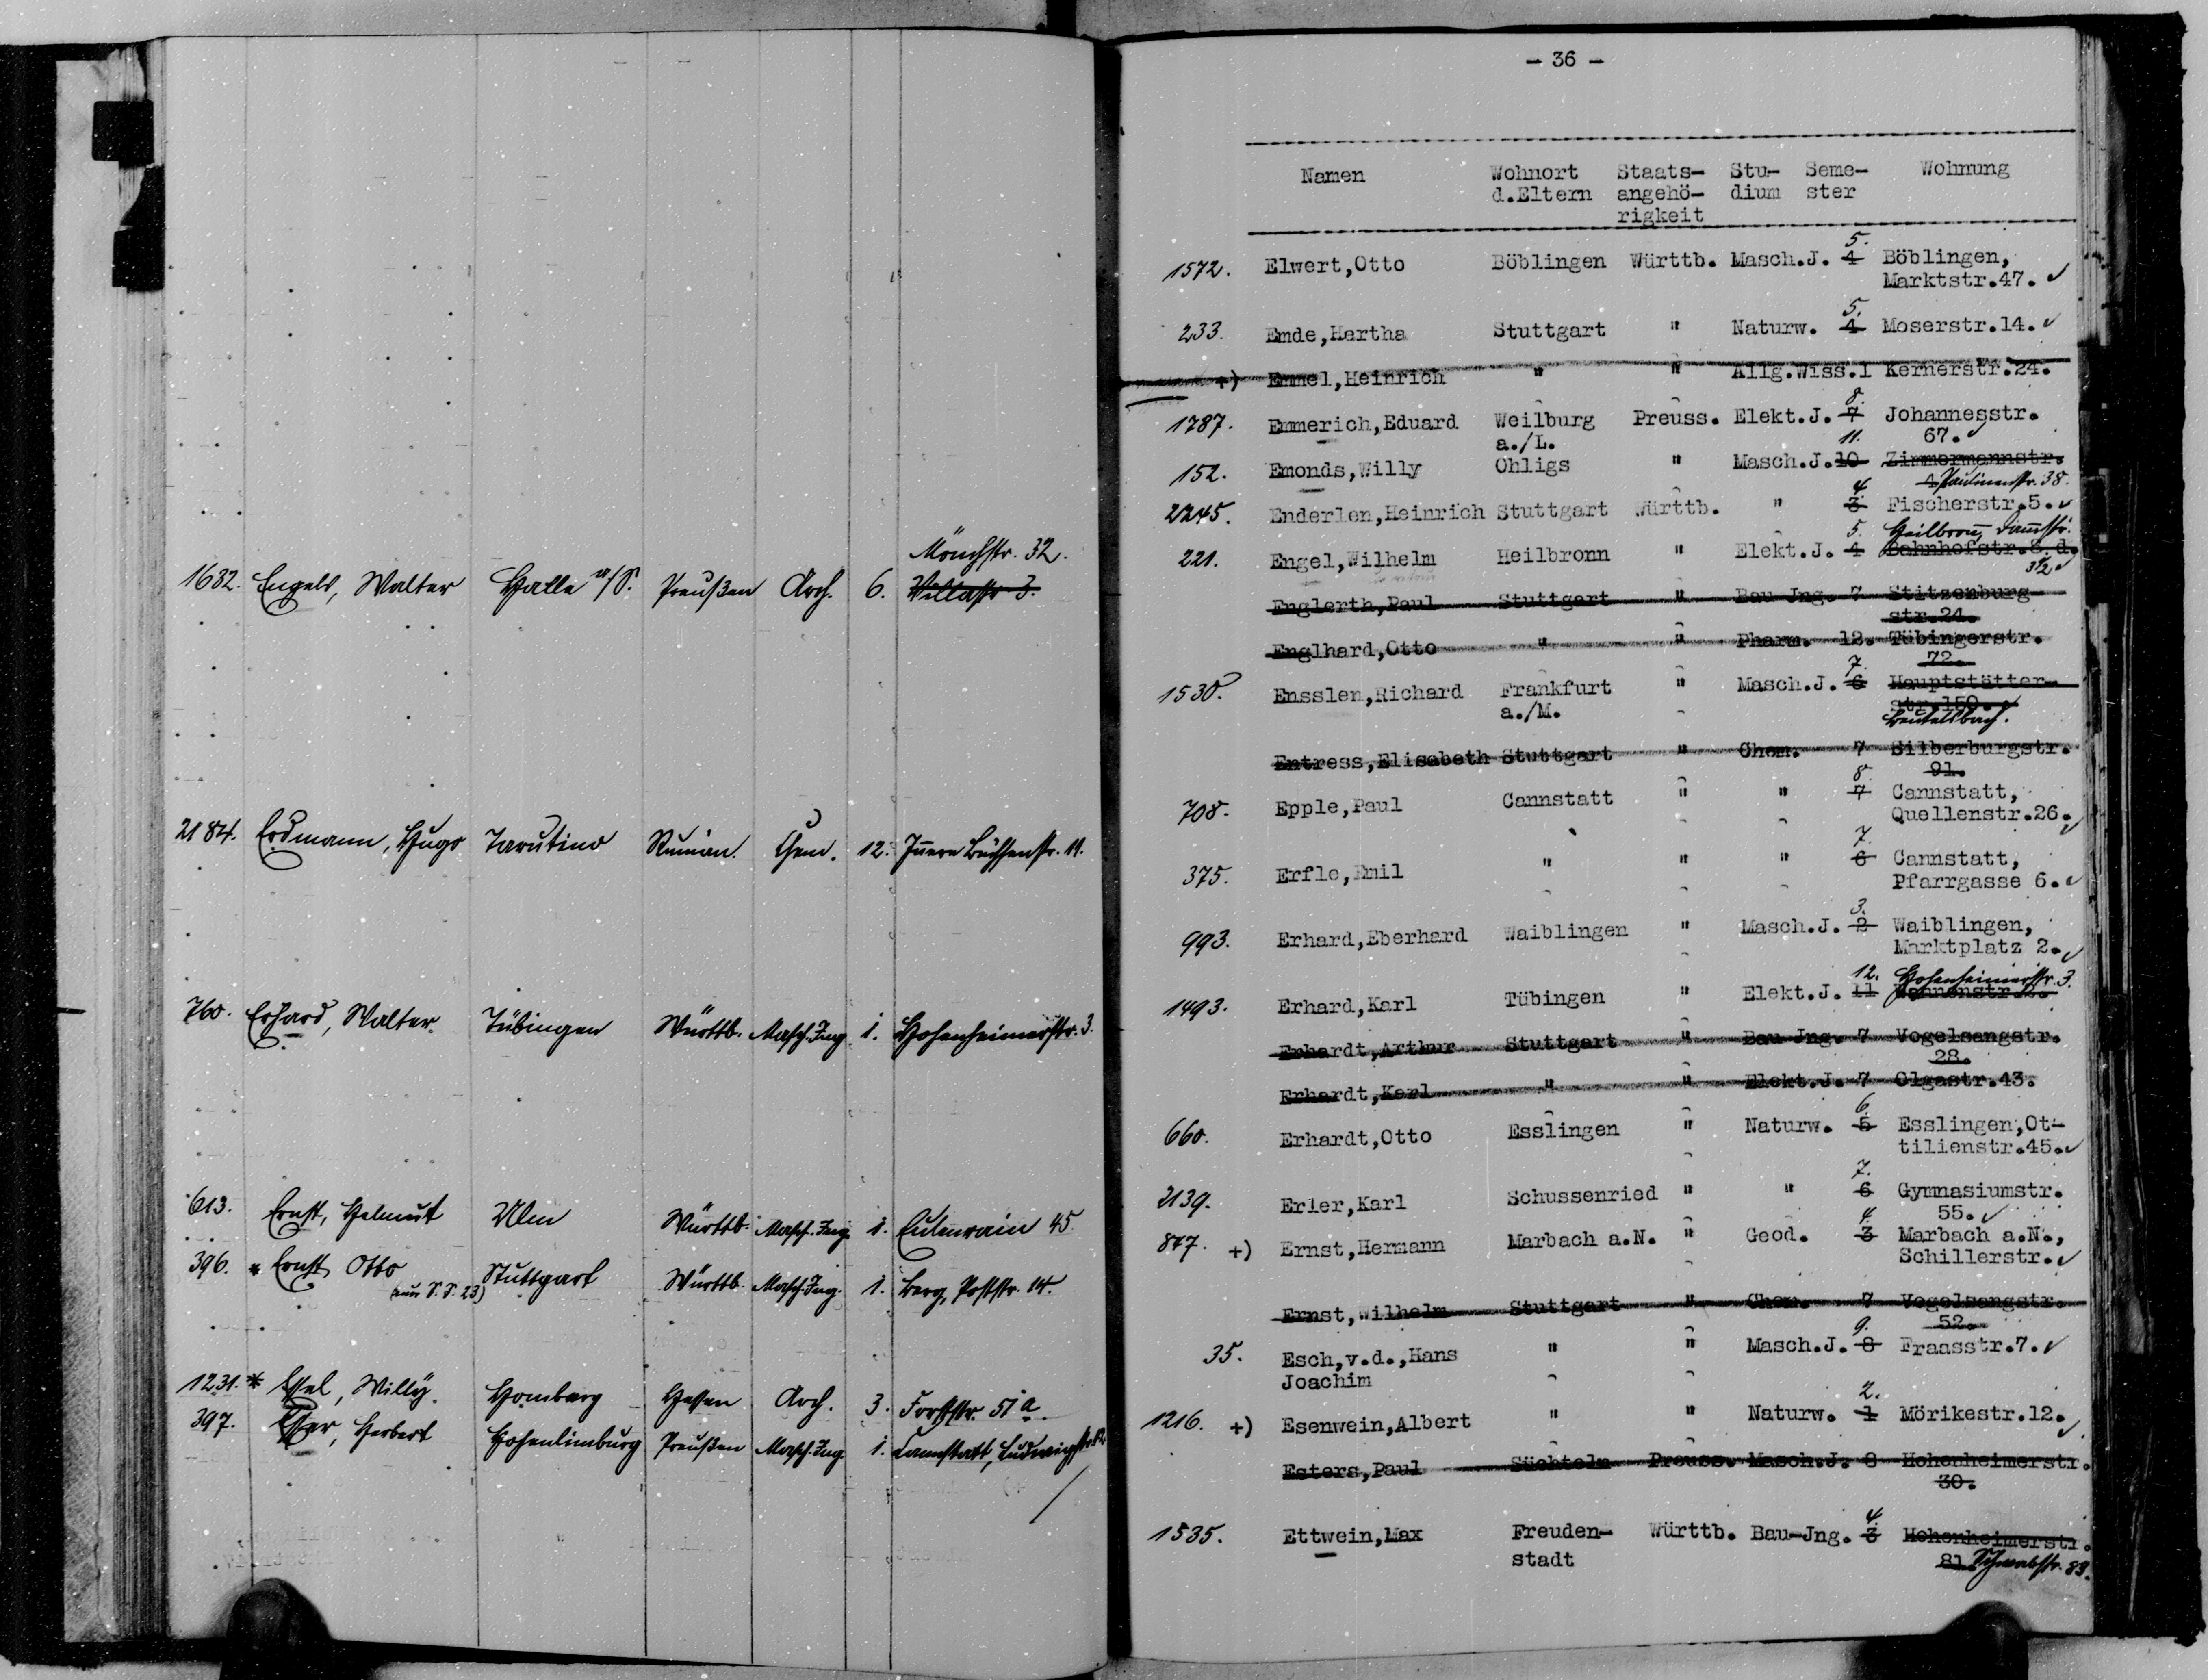 Mönchstr. 32.
1682. Engels, Walter Halle a/S. Preußen Arch. 6. Villastr 3.
2184. Erdmann, Hugo Tarutino Rumän. Chem. 12. Innere Büchsenstr. 11.
760. Erhard, Walter Tübingen Württb. Masch.Ing 1. Hohenheimerstr. 3.
613. Ernst, Helmut Ulm Württb. Masch.Ing. 1. Eulenrain 45.
396. * Ernst, Otto Stuttgart Württb. Masch.Ing. 1. Berg, Poststr. 14.
S.S. 23)
1231. * Essel, Willy. Homberg Hessen Arch. 3. Forststr. 51a.
397. Esser, Herbert Hohenlimburg Preußen Masch.Ing. 1. Cannstatt, Ludwigstr.
- 36 -
Namen Wohnort Staats- Stu- Seme- Wohnung
d.Eltern angehö- dium ster
rigkeit
5.
1572. Elwert,Otto Böblingen Württb. Masch.J. 4 Böblingen,
Marktstr.47. ✓
5.
233. Emde,Hartha Stuttgart " Naturw. 4 Moserstr.14. ✓
+) Emmel,Heinrich " " Allg.Wiss.1 Kernerstr.24.
8.
1787. Emmerich,Eduard Weilburg Preuss. Elekt.J. 7 Johannesstr.
a./L. 11. 67. ✓
152. Emonds,Willy Ohligs " Masch.J.10 Zimmermannstr.
4. 4 Paulinenstr. 38.
2245. Enderlen,Heinrich Stuttgart Württb. " 3 Fischerstr.5. ✓
5. Heilbronn, Dammstr.
221. Engel,Wilhelm Heilbronn " Elekt.J. 4 Bahnhofstr.8.d.
32 ✓
Englerth,Paul Stuttgart " Bau Jng. 7 Stitzenburg
str.24.
Englhard,Otto " " Pharm. 12. Tübingerstr.
7. 72.
1530. Ensslen,Richard Frankfurt " Masch.J. 6 Hauptstätter-
a./M. str.150. ✓
Beutelsbach.
Entress,Elisabeth Stuttgart " Chem. 7 Silberburgstr.
8. 91.
708. Epple,Paul Cannstatt " " 7 Cannstatt,
Quellenstr.26. ✓
7.
375. Erfle,Emil " " " 6 Cannstatt,
Pfarrgasse 6. ✓
3.
993. Erhard,Eberhard Waiblingen " Masch.J. 2 Waiblingen,
Marktplatz 2. ✓
12. Hohenheimerstr. 3.
1493. Erhard,Karl Tübingen " Elekt.J. 11
Erhardt,Arthur Stuttgart " Bau Jng. 7 Vogelsangstr.
28.
Erhardt,Karl " " Elekt.J. 7 Olgastr.43.
6.
660. Erhardt,Otto Esslingen " Naturw. 5 Esslingen,Ot-
tilienstr.45. ✓
7.
2139. Erler,Karl Schussenried " " 6 Gymnasiumstr.
4. 55. ✓
877. +) Ernst,Hermann Marbach a.N. " Geod. 3 Marbach a.N.,
Schillerstr. ✓
Ernst,Wilhelm Stuttgart " Chem. 7 Vogelsangstr.
9. 52.
35. Esch,v.d.,Hans " " Masch.J. 8 Fraasstr.7. ✓
Joachim
2.
1216. +) Esenwein,Albert " " Naturw. 1 Mörikestr.12. ✓
Esters,Paul Süchteln Preuss. Masch.J. 8 Hohenheimerstr.
30.
4.
1535. Ettwein,Max Freuden- Württb. Bau-Jng. 3 Hohenheimerstr.
stadt 81 Schwabstr. 89.